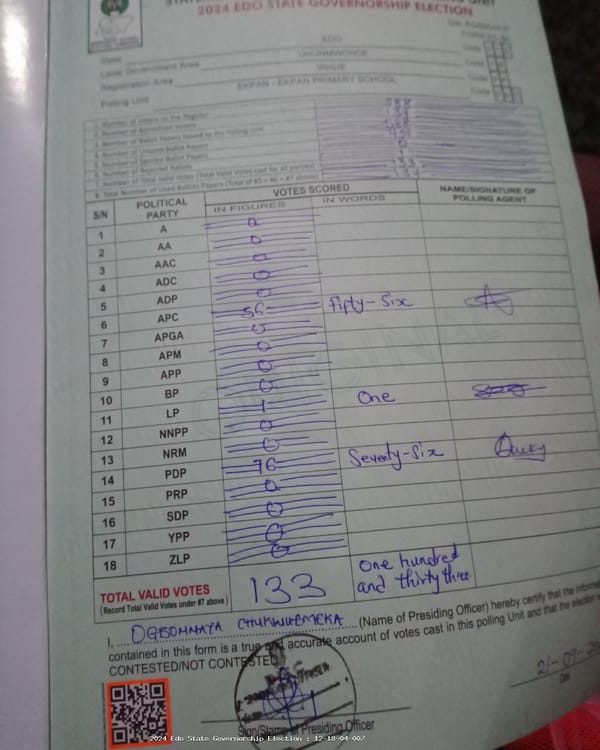 2024 EDO STATE GOVERNORSHIP ELECTION
State EDO Code
Local Government Area Code
Registration Area Code
Polling Unit EKPAN - EKPAN PRIMARY SCHOOL Code
1. Number of Voters on the Register
2. Number of Accredited Voters
3. Number of Ballot Papers Issued to the Polling Unit
4. Number of Unused Ballot Papers
5. Number of Spoiled Ballot Papers
6. Number of Rejected Ballots
7. Number of Total Valid Votes (Total Valid Votes cast for all parties)
8. Total Number of Used Ballots Papers (Total of #5 + #6 + #7 above)
S/N POLITICAL PARTY VOTES SCORED NAME/SIGNATURE OF POLLING AGENT
IN FIGURES IN WORDS
1 A 0
2 AA 0
3 AAC 0
4 ADC 0
5 ADP 0
6 APC 56 Fifty-Six
7 APGA 0
8 APM 0
9 APP 0
10 BP 0
11 LP 1 One
12 NNPP 0
13 NRM 0
14 PDP 76 Seventy-Six
15 PRP 0
16 SDP 0
17 YPP 0
18 ZLP 0
TOTAL VALID VOTES 133 One hundred
(Record Total Valid Votes under #7 above) and thirty three
I, OGBONNAYA CHUKWUEMEKA (Name of Presiding Officer) hereby certify that the
contained in this form is a true and accurate account of votes cast in this polling Unit and that the election
CONTESTED/NOT CONTESTED
21-09-
Sign/Stamp of Presiding Officer
2024 Edo State Governorship Election : 12-18-04-007